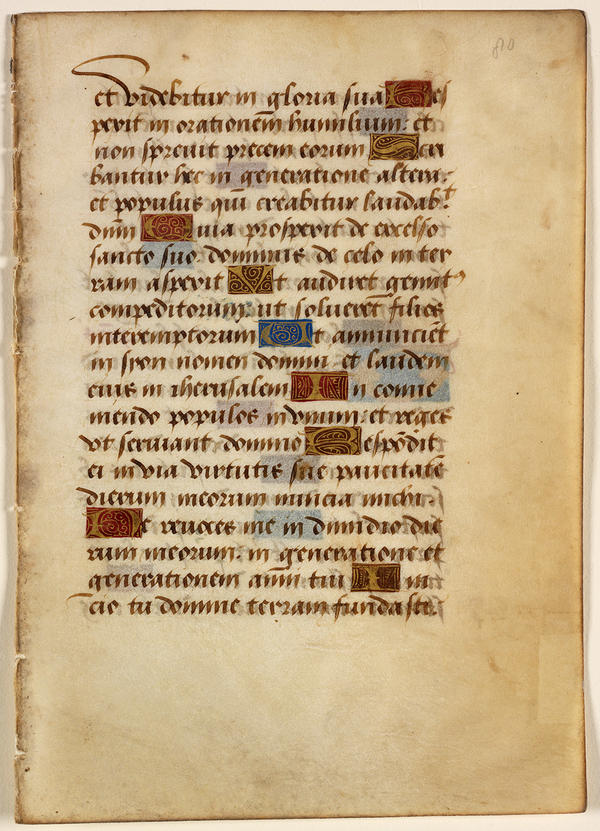 80
et videbitur in gloria sua Res
pexit in orationem humilium: et
non sprevit precem eorum Scri
bantur hec in generatione altera:
et populus qui creabitur laudabt
dnm Quia prospexit de excelso
sancto suo: dominus de celo in ter
ram aspexit Ut audiret gemit9
compeditorum: ut solveret filios
interemptorum Ut annunciēt
in syon nomen domini et laudem
eius in iherusalem In conue
niendo populos in vnum: et reges
vt serviant domino Respōdit
ei in via virtutis sue paucitatē
dierum meorum nuncia michi.
Ne revoces me in dimidio die
rum meorum: in generatione et
generationem anni tui Ini
cio tu domine terram fundasti.